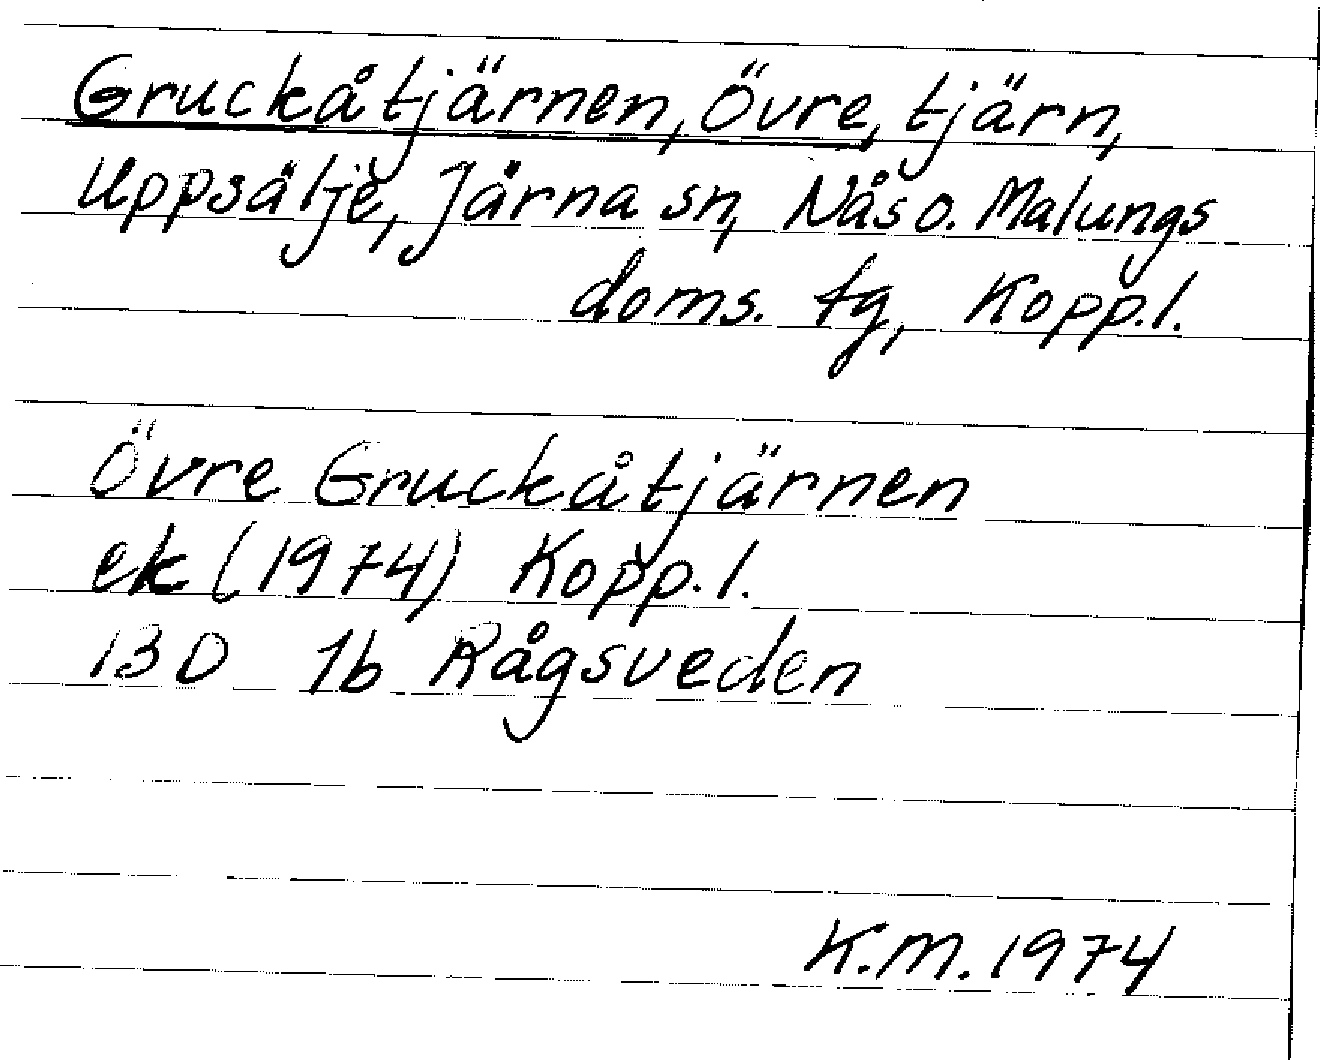 Gruckåtjärnen, Övre, tjärn,
Uppsälje, Järna sn, Nås o. Malungs
doms. tg, Kopp.l.
Övre Gruckåtjärnen
ek (1974) Kopp.l.
13D 1b Rågsveden
K.M. 1974